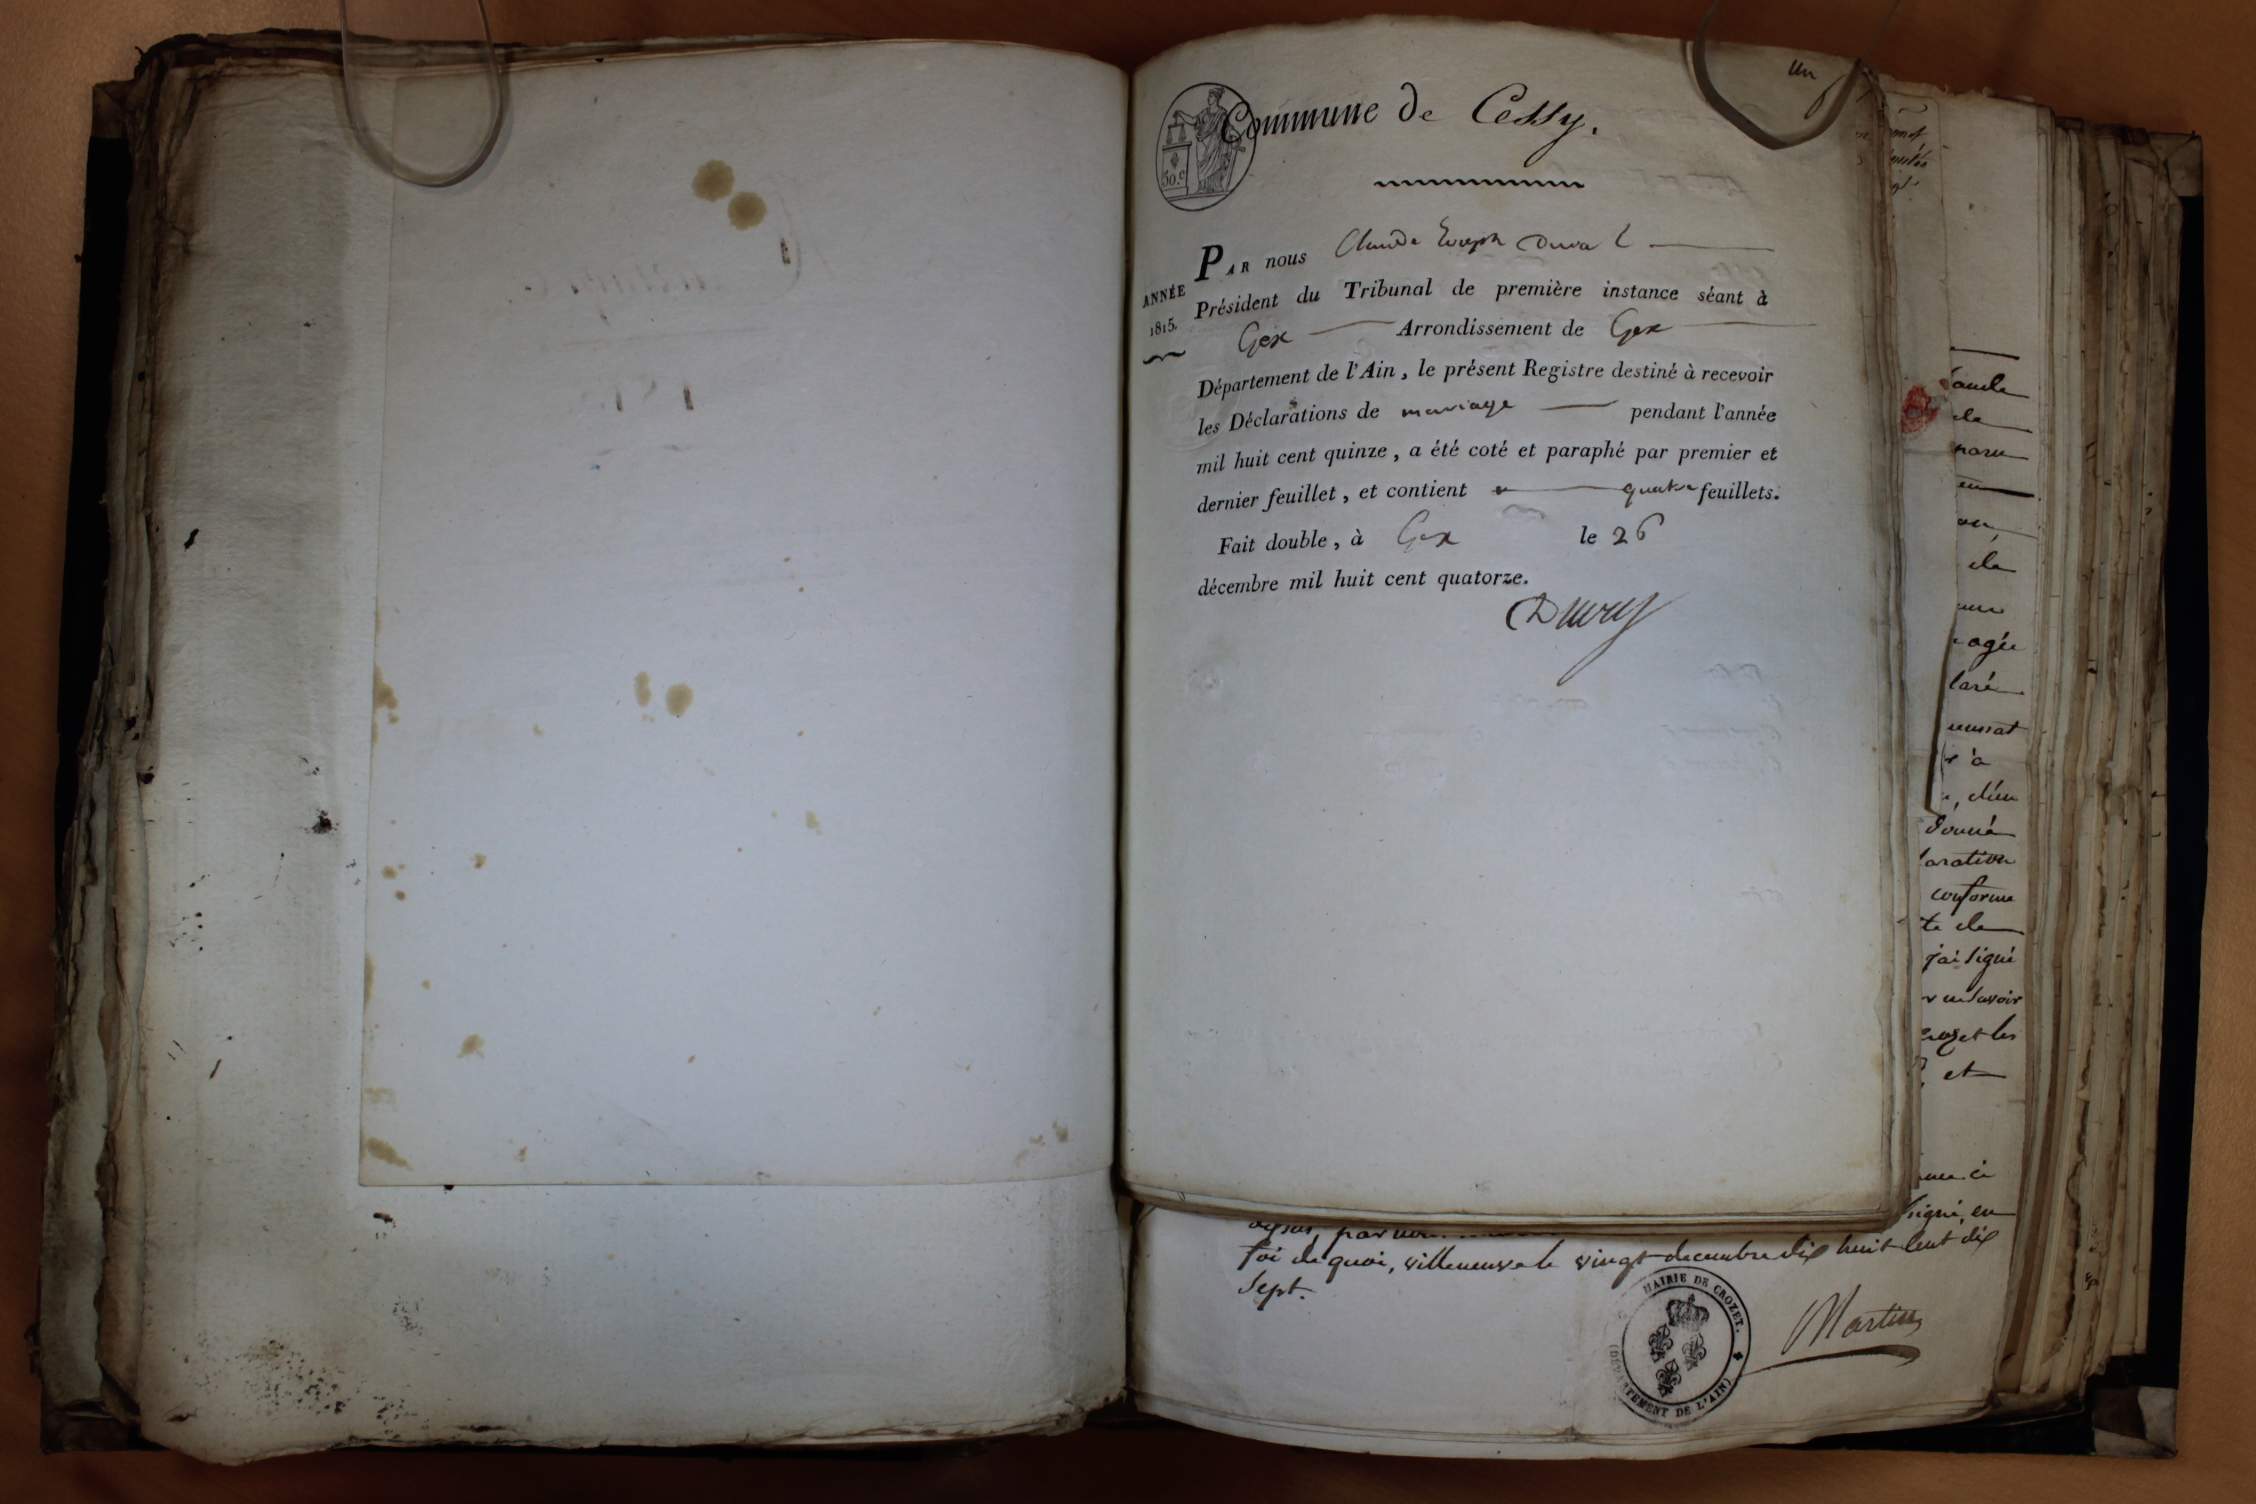 un
Commune de Cessy.
50.c
ANNÉE
1815.
PAR nous Claude Joseph Duval
Président du Tribunal de première instance séant à
Gex Arrondissement de Gex
Département de l'Ain, le présent Registre destiné à recevoir
les Déclarations de mariage pendant l'année
mil huit cent quinze, a été coté et paraphé par premier et
dernier feuillet, et contient quatre feuillets.
Fait double, à Gex le 26
décembre mil huit cent quatorze.
de
en
de
agée
laré
r à
donné
laration
conforme
te de
j'ai signé
et les
et
signé, en
foi de quoi, villeneuve le vingt decembre dix huit cent dix
sept.
MAIRIE DE CROZET.
(DÉPARTEMENT DE L'AIN)
Martin